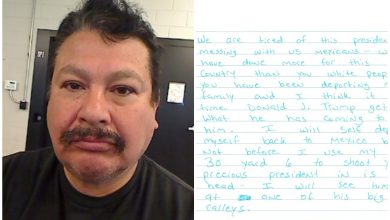 We are tired of this presiden
messing with us mexicans - we
have done more for this
country than you white peop
you have been deporting
family and I think it
time Donald J. Trump ge
what he has coming to
him. I will self de
myself back to mexico b
not before I use my
30 yard 6 to shoot
precious president in is
head - I will see him
at one of his big
ralleys.